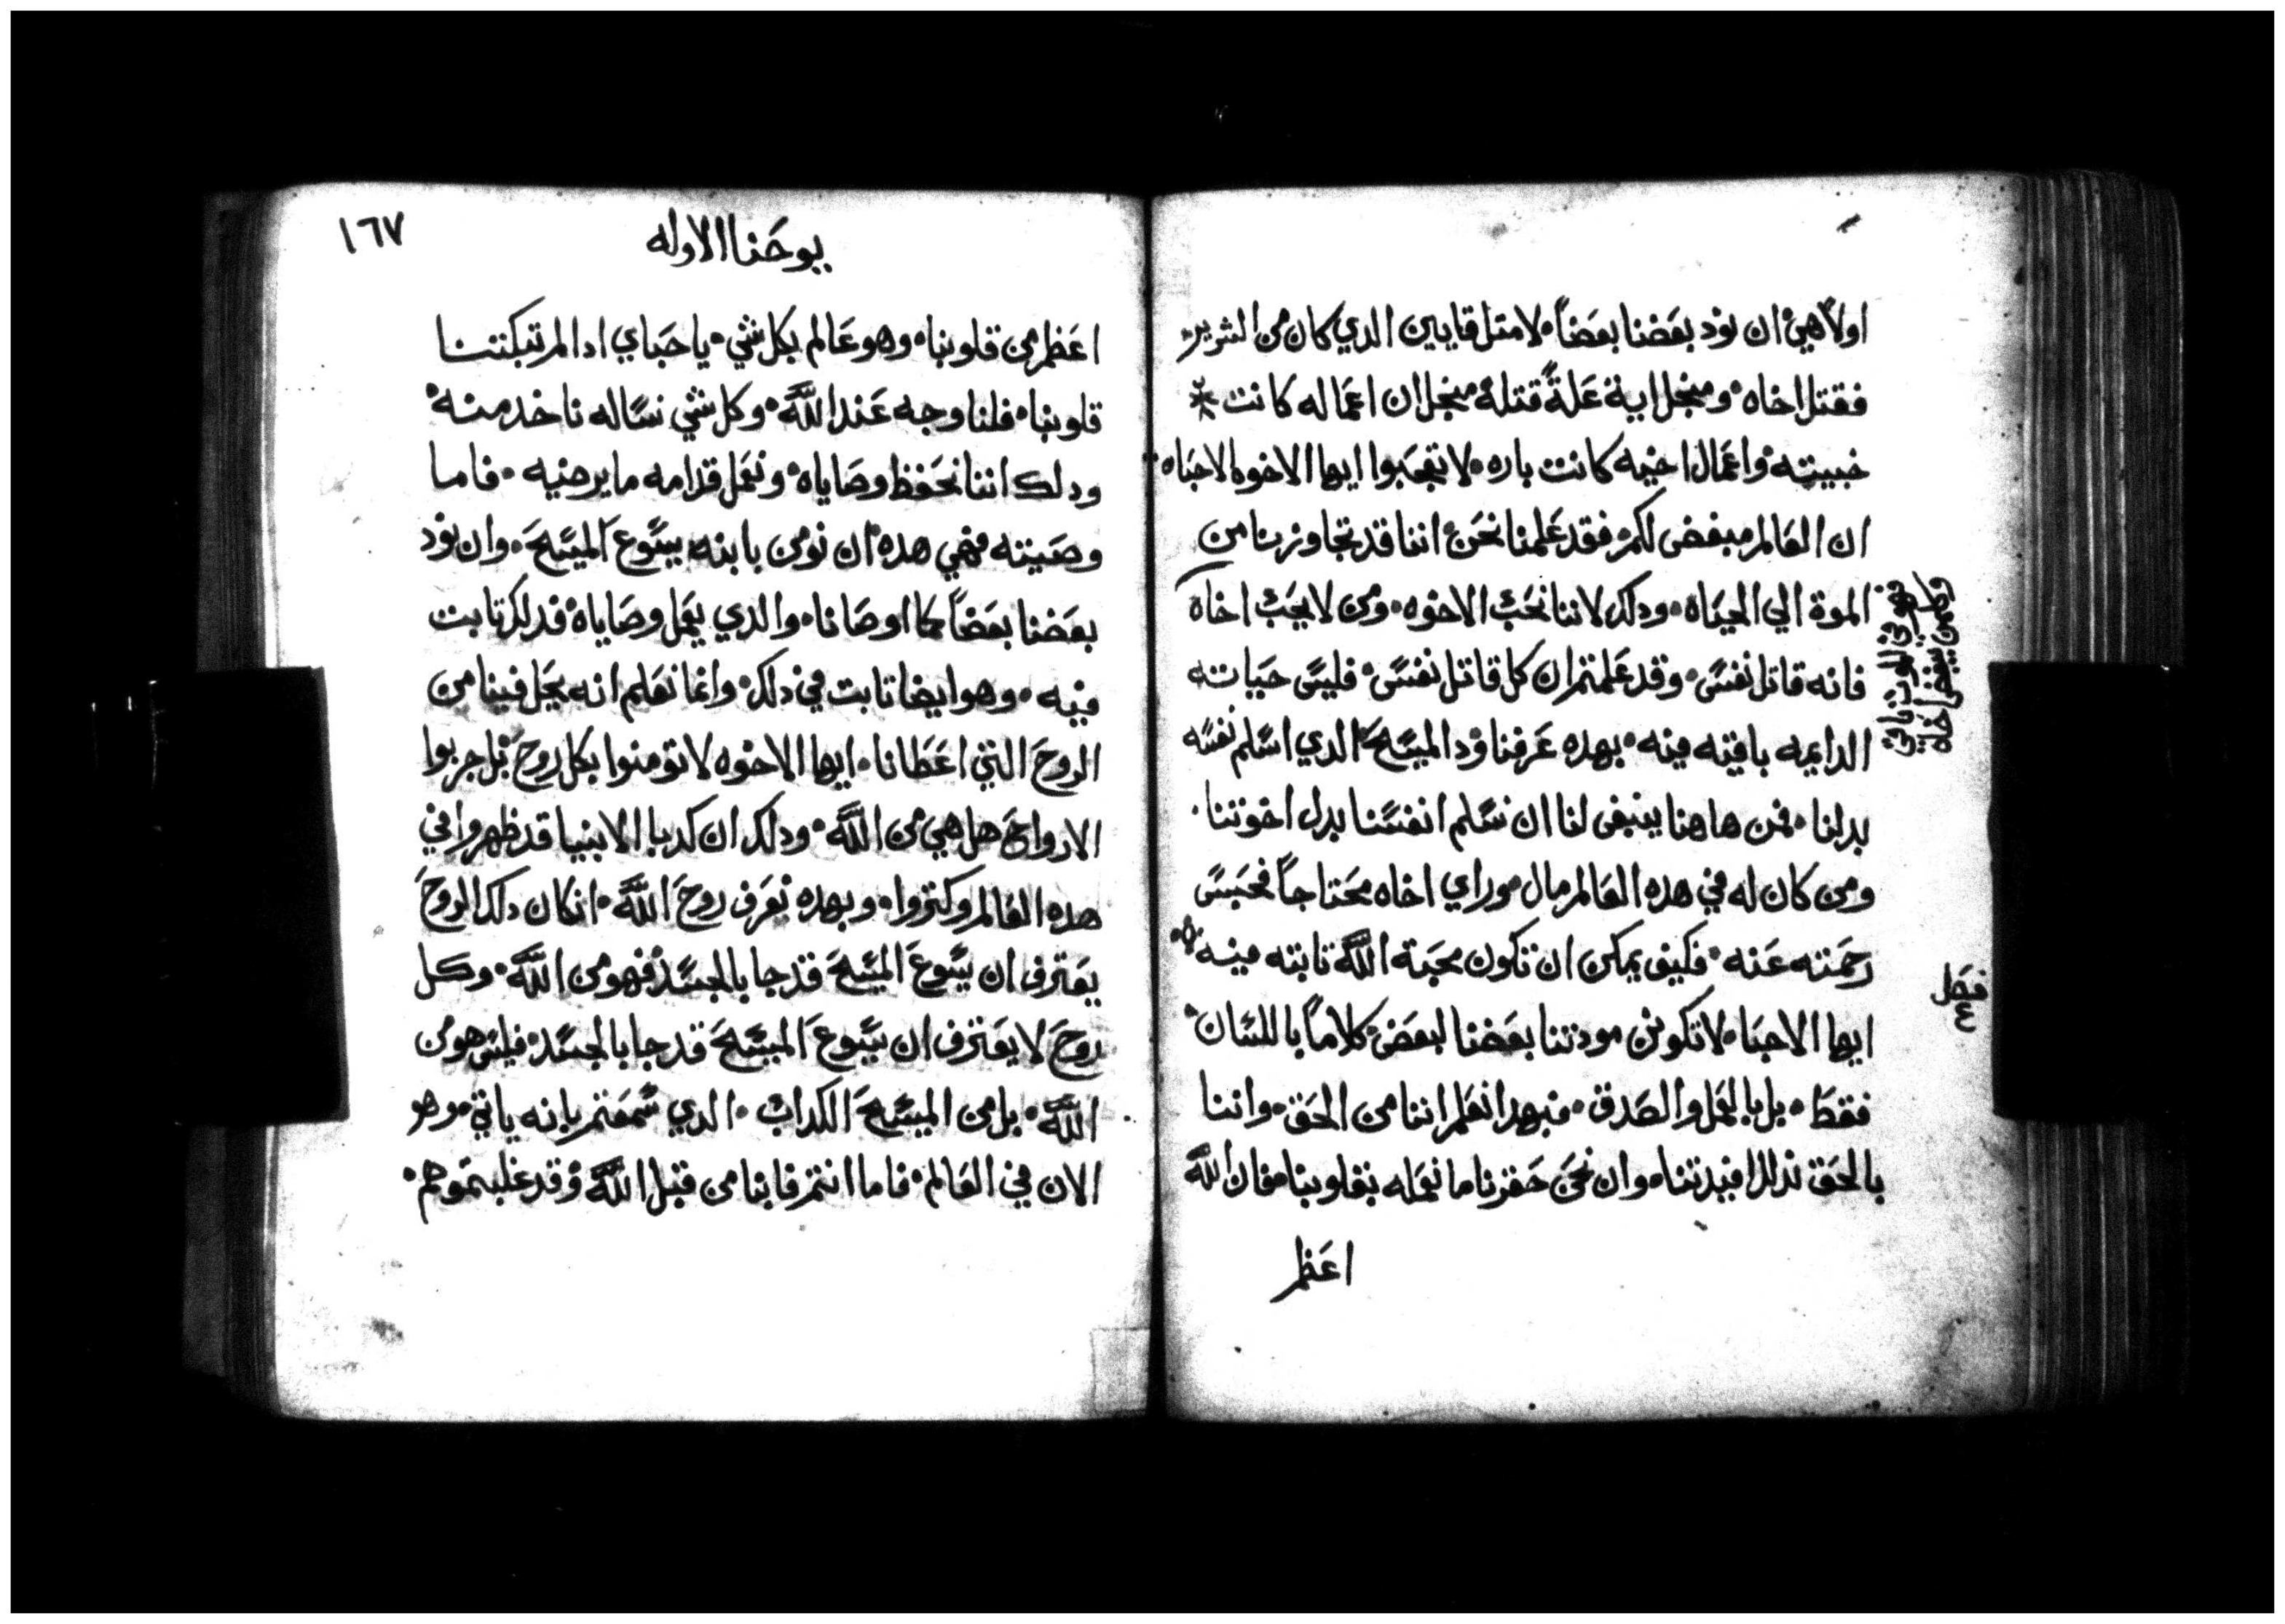 اولاً هي ان نود بعضنا بعضاً لا متل قايين الدي كان من الشرير
فقتل اخاه ومنجل اية علةً قتله منجل ان اعماله كانت
خبيته واعمال اخيه كانت باره لا تتعجبوا ايها الاخوه الاحباه
ان العالم مبغض لكم فقد علمنا نحن اننا قد تجاوزنا من
الموة الي الحياه ودلك لاننا نحب الاخوه ومن لا يحب اخاه
فانه قاتل نفس وقد علمتم ان كل قاتل نفس فليس حياته
الدايمه باقيه فيه بهده عرفنا ود المسيح الدي اسلم نفسه
بدلنا فمن هاهنا ينبغى لنا ان نسلم انفسنا بدل اخوتنا
ومن كان له في هده العالم مال وراي اخاه محتاجاً فحبس
رحمته عنه فكيف يمكن ان تكون محبة الله تابته فيه
ايها الاحبا لا تكونن مودتنا بعضنا لبعض كلاماً باللسان
فقط بل بالعمل والصدق فبهدا نعلم اننا من الحق واننا
بالحق ندلل افيدتنا وان نحن حقرنا ما نعمله بقلوبنا فان الله
اعظم
ومن يبغض اخاه
فصل
٤
١٦٧
يوحنا الاوله
اعظم من قلوبنا وهو عالم بكل شي يا حباي ادا لم تبكتنا
قلوبنا فلنا وجه عند الله وكل شي نساله ناخد منه
ودلك اننا نحفظ وصاياه ونعمل قدامه ما يرضيه فاما
وصيته فهي هده ان نومن بابنه يسوع المسيح وان نود
بعضنا بعضاً كما اوصانا والدي يعمل وصاياه فدلك تابت
فيه وهو ايضا تابت في دلك وانما نعلم انه يحل فينا من
الروح التي اعطانا ايها الاخوه لا تومنوا بكل روح بل جربوا
الارواح هل هي من الله ودلك ان كدبا الانبيا قد ظهروا في
هده العالم وكتروا وبهده نعرف روح الله ان كان دلك الروح
يعترف ان يسوع المسيح قد جا بالجسد فهو من الله وكل
روح لا يعترف ان يسوع المسيح قد جا بالجسد فليس هو من
الله بل من المسيح الكداب الدي سمعتم بانه ياتي وهو
الان في العالم فاما انتم فابنا من قبل الله وقد غلبتموهم